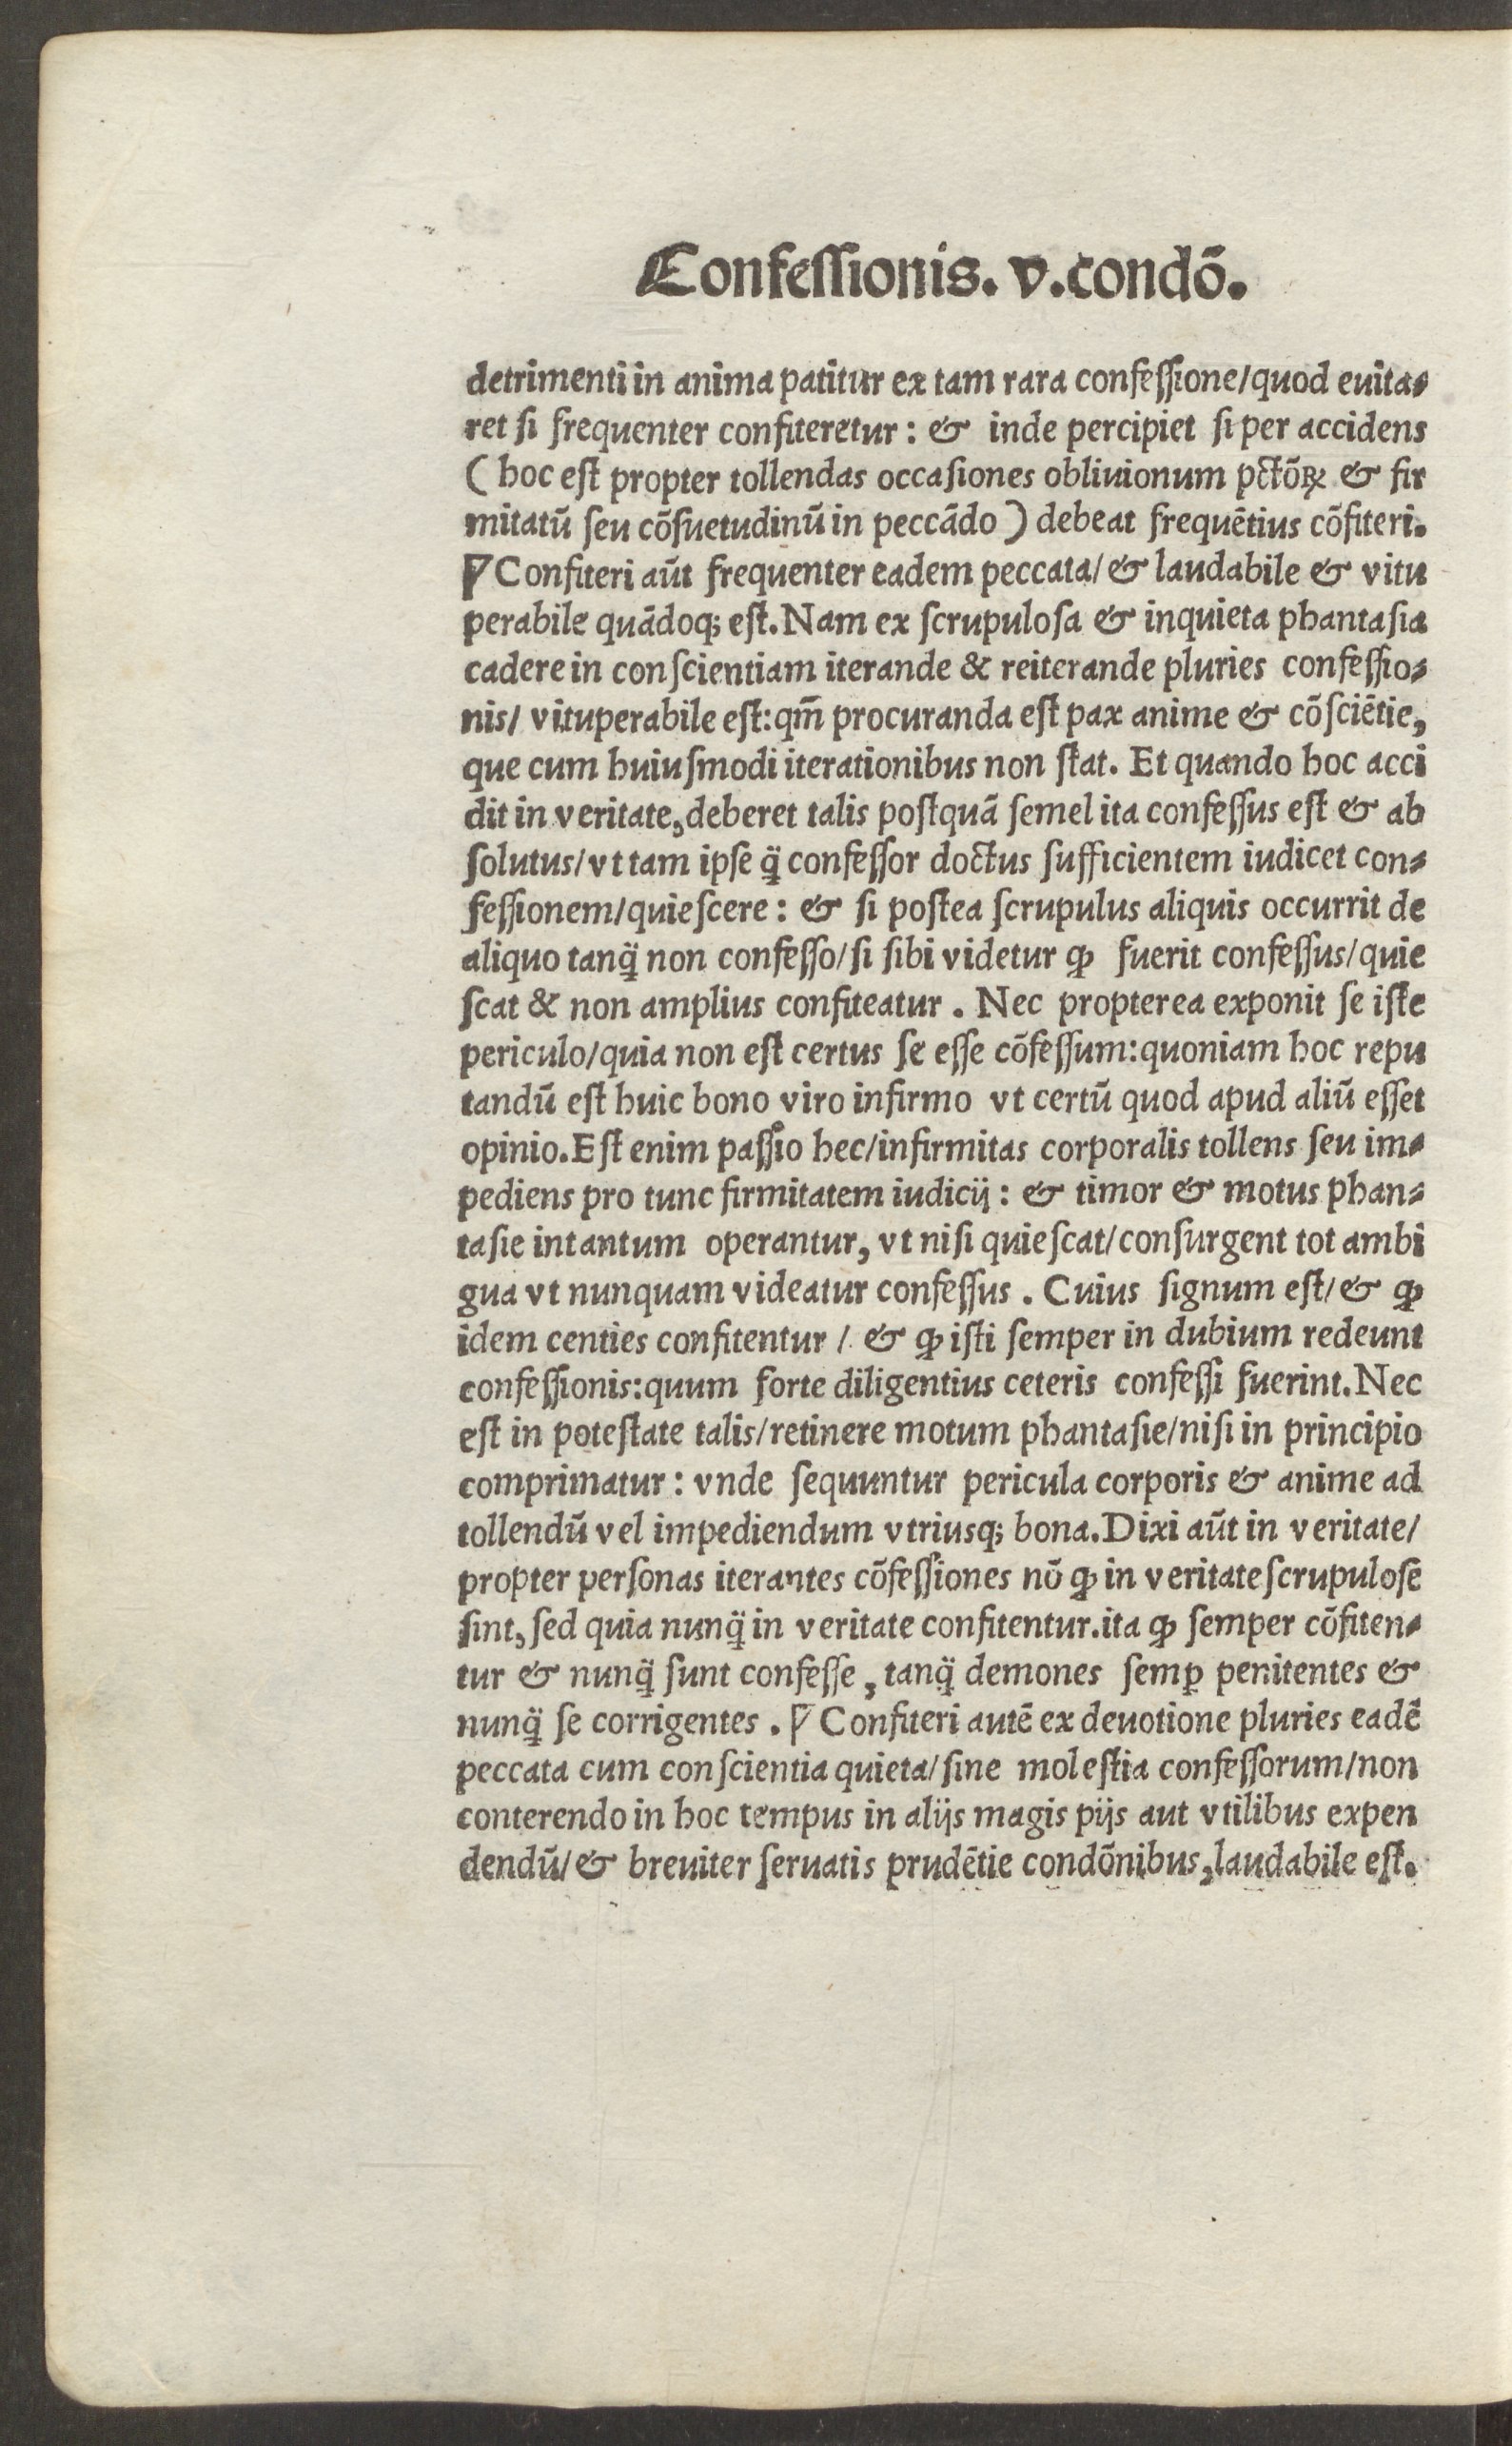 Confessionis. v.condō.
detrimenti in anima patitur ex tam rara confessione/quod euita⸗
ret si frequenter confiteretur: & inde percipiet si per accidens
(hoc est propter tollendas occasiones obliuionum pctōꝝ & fir
mitatū seu cōsuetudinū in peccādo) debeat frequētius cōfiteri.
¶Confiteri aūt frequenter eadem peccata/& laudabile & vitu
perabile quādoqꝫ est. Nam ex scrupulosa & inquieta phantasia
cadere in conscientiam iterande & reiterande pluries confessio⸗
nis/ vituperabile est:qm̄ procuranda est pax anime & cōsciētie,
que cum huiusmodi iterationibus non stat. Et quando hoc acci
dit in veritate, deberet talis postquā semel ita confessus est & ab
solutus/vt tam ipse q̄ confessor doctus sufficientem iudicet con⸗
fessionem/quiescere: & si postea scrupulus aliquis occurrit de
aliquo tanq̄ non confesso/si sibi videtur ꝙ fuerit confessus/quie
scat & non amplius confiteatur. Nec propterea exponit se iste
periculo/quia non est certus se esse cōfessum:quoniam hoc repu
tandū est huic bono viro infirmo vt certū quod apud aliū esset
opinio. Est enim passio hec/infirmitas corporalis tollens seu im⸗
pediens pro tunc firmitatem iudicij: & timor & motus phan⸗
tasie intantum operantur, vt nisi quiescat/consurgent tot ambi
gua vt nunquam videatur confessus. Cuius signum est/& ꝙ
idem centies confitentur/ & ꝙ isti semper in dubium redeunt
confessionis:quum forte diligentius ceteris confessi fuerint. Nec
est in potestate talis/retinere motum phantasie/nisi in principio
comprimatur: vnde sequuntur pericula corporis & anime ad
tollendū vel impediendum vtriusqꝫ bona. Dixi aūt in veritate/
propter personas iterantes cōfessiones nō ꝙ in veritate scrupulose
sint, sed quia nunq̄ in veritate confitentur. ita ꝙ semper cōfiten⸗
tur & nunq̄ sunt confesse, tanq̄ demones semꝑ penitentes &
nunq̄ se corrigentes. ¶Confiteri autē ex deuotione pluries eadē
peccata cum conscientia quieta/sine molestia confessorum/non
conterendo in hoc tempus in alijs magis pijs aut vtilibus expen
dendū/& breuiter seruatis prudētie condōnibus, laudabile est.